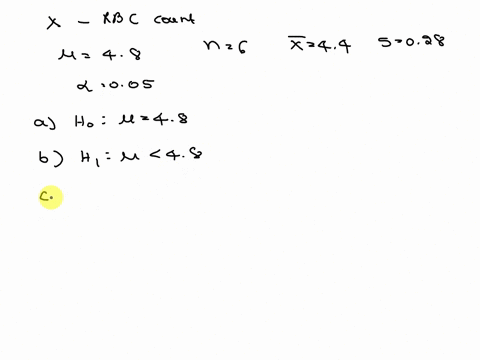 x – RBC count
μ = 4.8 n=6 x̄=4.4 s=0.28
α=0.05
a) H₀: μ=4.8
b) H₁: μ<4.8
c.